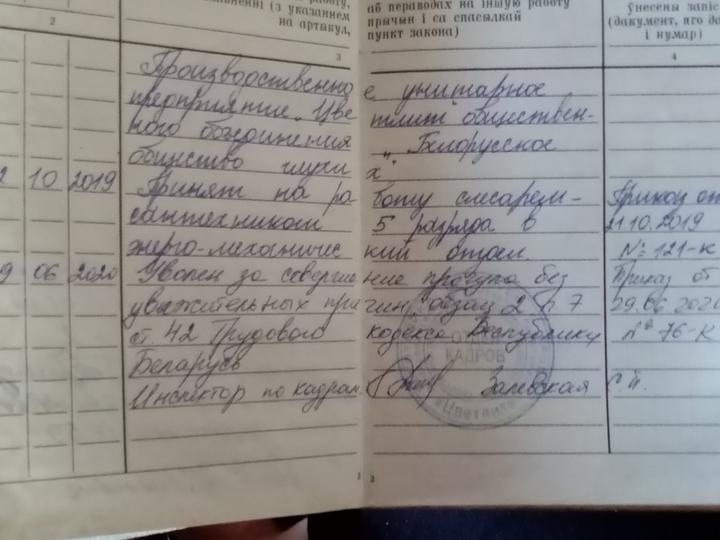 работу,
(з указаннем
на артыкул,
аб пераводах на іншую работу
прычын і са спасылкай
пункт закона)
ўнесены запіс
(дакумент, яго да
і нумар)
2 3 4
Производственно е унитарное
предприятие "Цве тлит" обществен-
ного объединения "Белорусское
общество глухи х".
2 10 2019 Принят на ра боту слесарем- Приказ от
сантехником 5 разряда в 21.10.2019
энерго-механичес кий отдел. № 121-к
9 06 2020 Уволен за соверше ние прогула без Приказ от
уважительных при чин, абзац 2 п 7 29.06.2020
ст. 42 Трудового кодекса Республики № 76-К
Беларусь
Инспектор по кадрам Залевская С.Т.
КАДРОВ
"Цветлит"
3